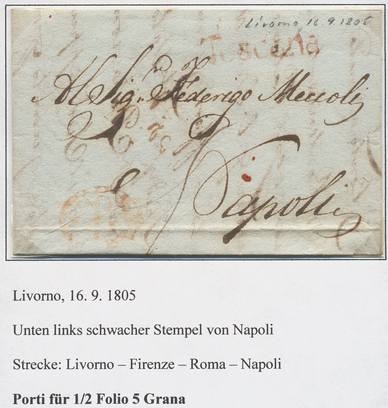 Livorno 16 9 1805
Toscana
Al Sig.r Federigo Meccoli
Napoli
Livorno, 16. 9. 1805
Unten links schwacher Stempel von Napoli
Strecke: Livorno – Firenze – Roma – Napoli
Porti für 1/2 Folio 5 Grana